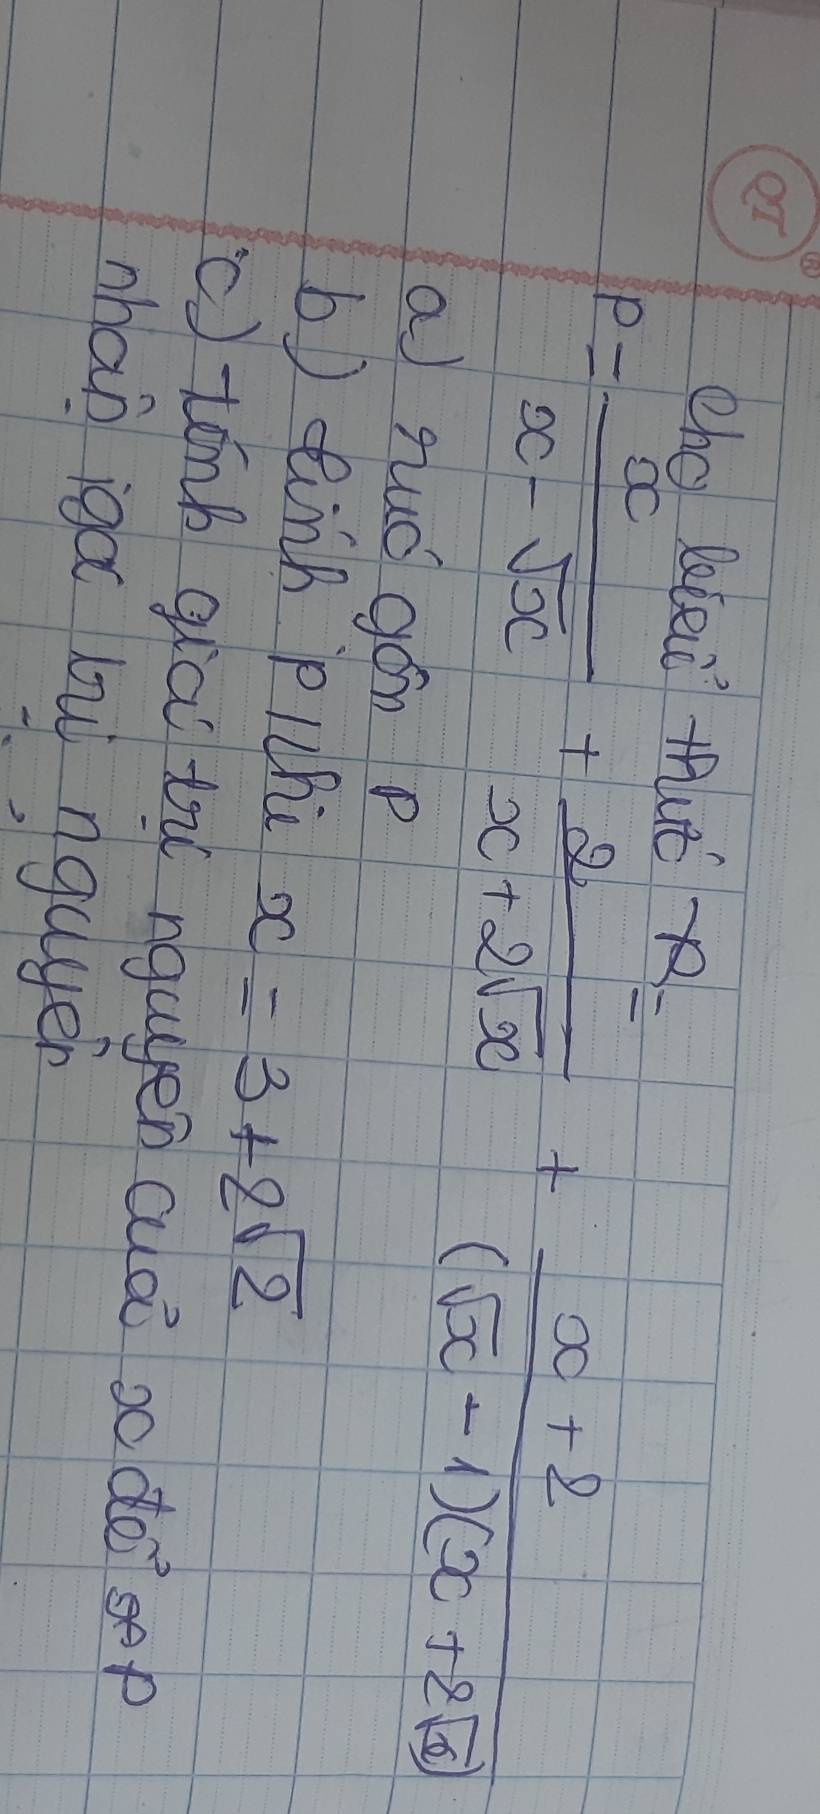 Cho biểu thức P =
P = x / (x - √x) + 2 / (x + 2√x) + (x + 2) / ((√x - 1)(x + 2√x))
a) rút gọn P
b) tính P khi x = 3 + 2√2
c) tính giá trị nguyên của x để P
nhận giá trị nguyên